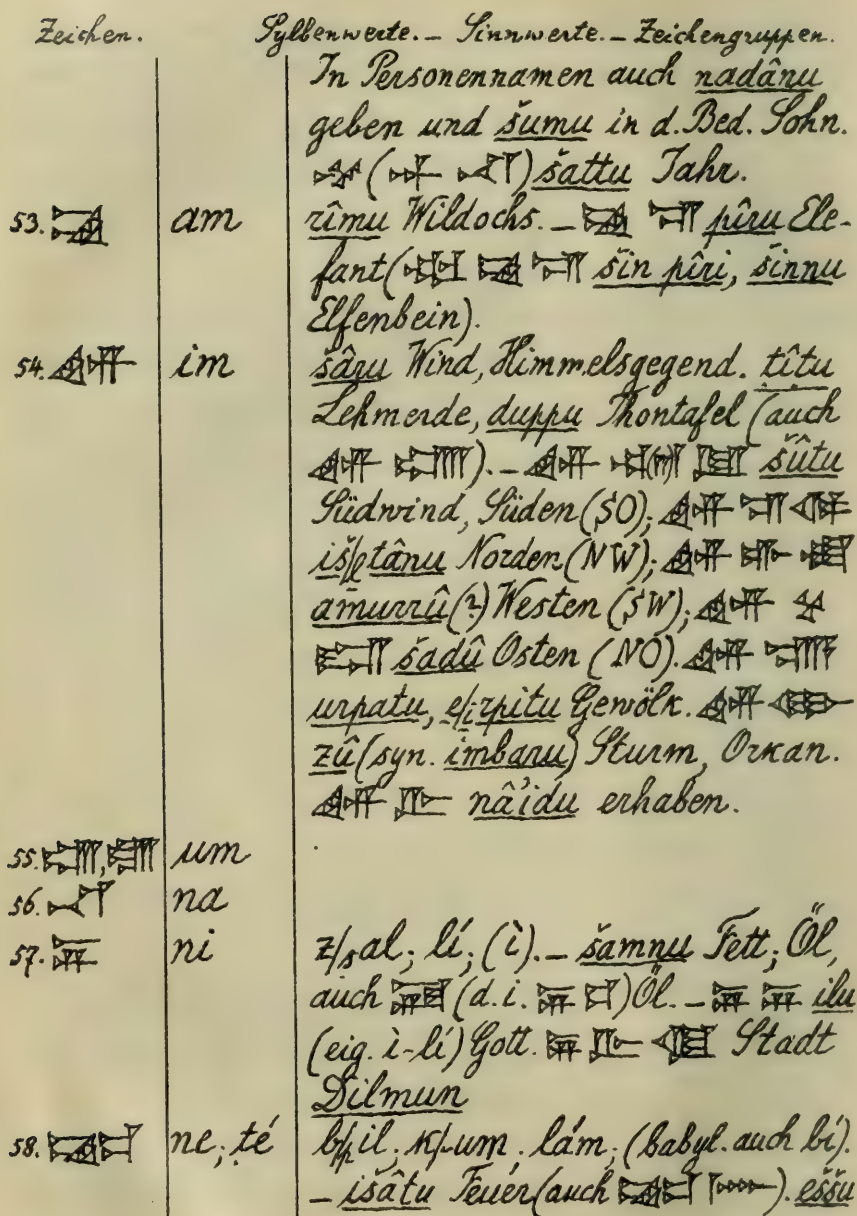 Zeichen. Sylbenwerte. – Sinnwerte. – Zeichengruppen.
In Personennamen auch nadânu
geben und šumu in d. Bed. Sohn.
𒈬 (𒀭 𒈾) šattu Jahr.
53. 𒄠 am rîmu Wildochs. – 𒄠 𒋛 pîru Ele-
fant (𒅗 𒄠 𒋛 šin pîri, šinnu
Elfenbein).
54. 𒅎 im šâru Wind, Himmelsgegend. ṭîṭu
Lehmerde, duppu Thontafel (auch
𒅎 𒁾). – 𒅎 šûtu
Südwind, Süden (SO); 𒅎 𒋛 𒁲
iš/ltânu Norden (NW); 𒅎 𒈥 𒌅
amurrû(?) Westen (SW); 𒅎 𒆳
𒊏 šadû Osten (NO). 𒅎 𒂊
urpatu, e/irpitu Gewölk. 𒅎
zû (syn. imbaru) Sturm, Orkan.
𒅎 𒌇 nâ'idu erhaben.
55. 𒌝, 𒌝 um
56. 𒈾 na
57. 𒉌 ni z/sal; lí; (ì). – šamnu Fett; Öl,
auch (d.i. 𒉌) Öl. – 𒉌 𒉌 ilu
(eig. ì-lí) Gott. 𒉌 𒌇 𒆠 Stadt
Dilmun
58. 𒉈 ne; ṭé b/pil; ḳ/kum. lám; (babyl. auch bí).
– išâtu Feuer (auch 𒉈 𒈨𒌍). eššu